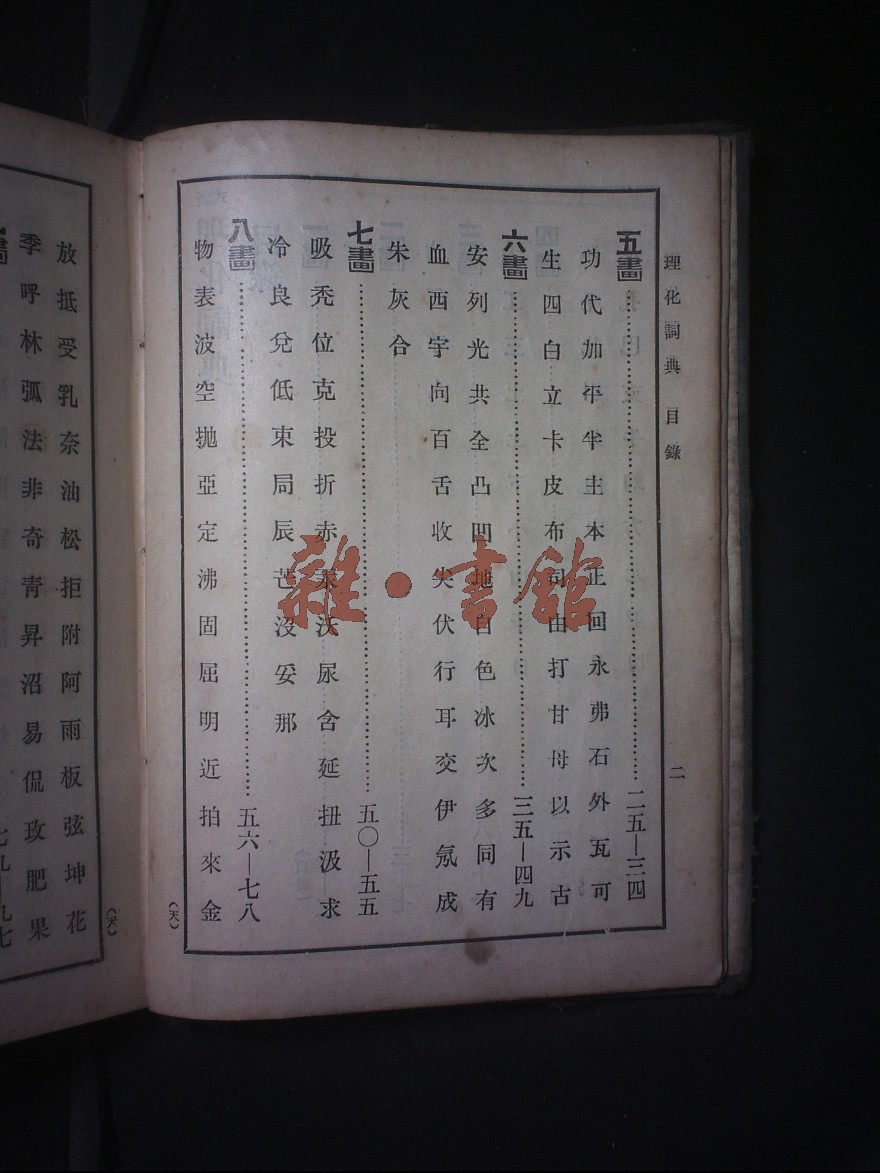 理化詞典 目錄
二
五畫……二五—三四
功代加平半主本正回永弗石外瓦可
生四白立卡皮布司由打甘母以示古
六畫……三五—四九
安列光共全凸凹地自色冰次多同有
血西宇向百舌收尖伏行耳交伊氖成
朱灰合
七畫……五〇—五五
吸禿位克投折赤汞沃尿含延扭汲求
冷良兌低束局辰芒沒妥那
八畫……五六—七八
物表波空拋亞定沸固屈明近拍來金
(天)
放抵受乳奈油松拒附阿雨板弦坤花
季呼林弧法非奇靑昇沼易侃玫肥果
畫
七九—九七
(天)
雜·書館